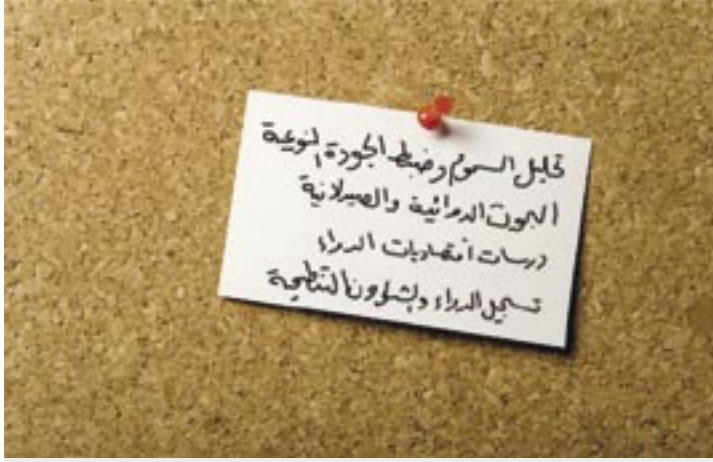 تحليل السموم وضبط الجودة النوعية
البحوث الدوائية والصيدلانية
درسات اقتصاديات الدواء
تسجيل الدواء والشؤون التنظيمية